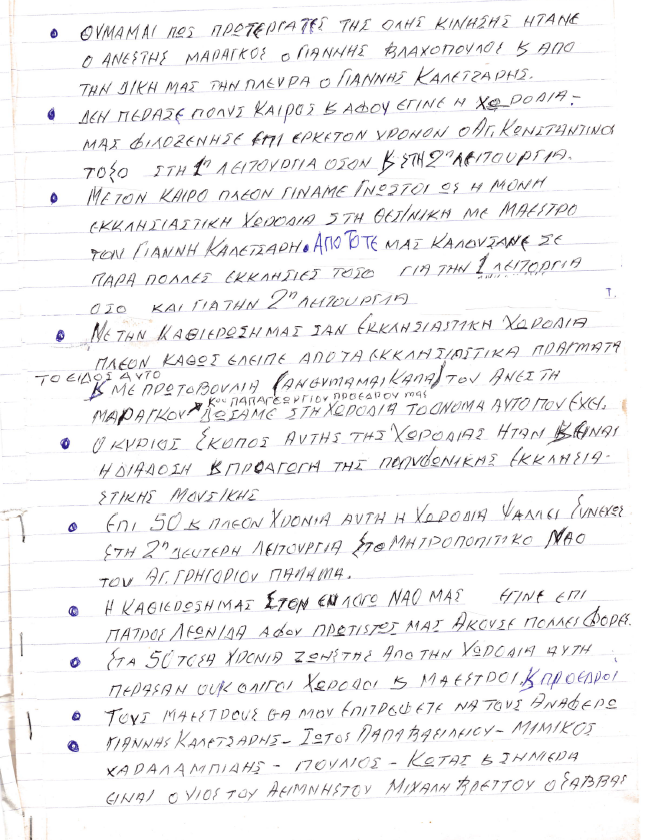 • ΘΥΜΑΜΑΙ ΠΩΣ ΠΡΩΤΕΡΓΑΤΕΣ ΤΗΣ ΟΛΗΣ ΚΙΝΗΣΗΣ ΗΤΑΝΕ
Ο ΑΝΕΣΤΗΣ ΜΑΡΑΓΚΟΣ Ο ΓΙΑΝΝΗΣ ΒΛΑΧΟΠΟΥΛΟΣ & ΑΠΟ
ΤΗΝ ΔΙΚΗ ΜΑΣ ΤΗΝ ΠΛΕΥΡΑ Ο ΓΙΑΝΝΗΣ ΚΑΛΕΤΣΑΡΗΣ.
• ΔΕΝ ΠΕΡΑΣΕ ΠΟΛΥΣ ΚΑΙΡΟΣ & ΑΦΟΥ ΕΓΙΝΕ Η ΧΩΡΟΔΙΑ-
ΜΑΣ ΦΙΛΟΞΕΝΗΣΕ ΕΠΙ ΕΡΚΕΤΟΝ ΧΡΟΝΟΝ Ο ΑΓ. ΚΩΝΣΤΑΝΤΙΝΟ
ΤΟΞΟ ΣΤΗ 1η ΛΕΙΤΟΥΡΓΙΑ ΟΣΟΝ & ΣΤΗ 2η ΛΕΙΤΟΥΡΓΙΑ.
• ΜΕ ΤΟΝ ΚΑΙΡΟ ΠΛΕΟΝ ΓΙΝΑΜΕ ΓΝΩΣΤΟΙ ΩΣ Η ΜΟΝΗ
ΕΚΚΛΗΣΙΑΣΤΙΚΗ ΧΩΡΟΔΙΑ ΣΤΗ ΘΕΣ/ΝΙΚΗ ΜΕ ΜΑΕΣΤΡΟ
ΤΟΝ ΓΙΑΝΝΗ ΚΑΛΕΤΣΑΡΗ. ΑΠΟ ΤΟΤΕ ΜΑΣ ΚΑΛΟΥΣΑΝΕ ΣΕ
ΠΑΡΑ ΠΟΛΛΕΣ ΕΚΚΛΗΣΙΕΣ ΤΟΣΟ ΓΙΑ ΤΗΝ 1 ΛΕΙΤΟΡΓΙΑ
ΟΣΟ ΚΑΙ ΓΙΑ ΤΗΝ 2η ΛΕΙΤΟΥΡΓΙΑ
• ΜΕ ΤΗΝ ΚΑΘΙΕΡΩΣΗ ΜΑΣ ΣΑΝ ΕΚΚΛΗΣΙΑΣΤΙΚΗ ΧΩΡΟΔΙΑ
ΠΛΕΟΝ ΚΑΘΩΣ ΕΛΕΙΠΕ ΑΠΟ ΤΑ ΕΚΚΛΗΣΙΑΣΤΙΚΑ ΠΡΑΓΜΑΤΑ
ΤΟ ΕΙΔΟΣ ΑΥΤΟ
& ΜΕ ΠΡΩΤΟΒΟΥΛΙΑ (ΑΝ ΘΥΜΑΜΑΙ ΚΑΛΑ) ΤΟΥ ΑΝΕΣΤΗ
ΚΟΥ ΠΑΠΑΓΕΩΡΓΙΟΥ ΠΡΟΕΔΡΟΥ ΜΑΣ
ΜΑΡΑΓΚΟΥ ΔΩΣΑΜΕ ΣΤΗ ΧΩΡΟΔΙΑ ΤΟ ΟΝΟΜΑ ΑΥΤΟ ΠΟΥ ΕΧΕΙ.
• Ο ΚΥΡΙΟΣ ΣΚΟΠΟΣ ΑΥΤΗΣ ΤΗΣ ΧΩΡΟΔΙΑΣ ΗΤΑΝ & ΕΙΝΑΙ
Η ΔΙΑΔΟΣΗ & ΠΡΟΑΓΩΓΗ ΤΗΣ ΠΟΛΥΦΩΝΙΚΗΣ ΕΚΚΛΗΣΙΑ-
ΣΤΙΚΗΣ ΜΟΥΣΙΚΗΣ
• ΕΠΙ 50 & ΠΛΕΟΝ ΧΡΟΝΙΑ ΑΥΤΗ Η ΧΩΡΟΔΙΑ ΨΑΛΛΕΙ ΣΥΝΕΧΩΣ
ΣΤΗ 2η ΔΕΥΤΕΡΗ ΛΕΙΤΟΥΡΓΙΑ ΣΤΟ ΜΗΤΡΟΠΟΛΙΤΙΚΟ ΝΑΟ
ΤΟΥ ΑΓ. ΓΡΗΓΟΡΙΟΥ ΠΑΛΑΜΑ.
• Η ΚΑΘΙΕΡΩΣΗ ΜΑΣ ΣΤΟΝ ΕΝ ΛΟΓΩ ΝΑΟ ΜΑΣ ΕΓΙΝΕ ΕΠΙ
ΠΑΤΡΟΣ ΛΕΩΝΙΔΑ ΑΦΟΥ ΠΡΩΤΙΣΤΩΣ ΜΑΣ ΑΚΟΥΣΕ ΠΟΛΛΕΣ ΦΟΡΕΣ.
• ΣΤΑ 50 ΤΟΣΑ ΧΡΟΝΙΑ ΖΩΗΣ ΤΗΣ ΑΠΟ ΤΗΝ ΧΩΡΟΔΙΑ ΑΥΤΗ
ΠΕΡΑΣΑΝ ΟΥΚ ΟΛΙΓΟΙ ΧΩΡΟΔΟΙ & ΜΑΕΣΤΡΟΙ. & ΠΡΟΕΔΡΟΙ
• ΤΟΥΣ ΜΑΕΣΤΡΟΥΣ ΘΑ ΜΟΥ ΕΠΙΤΡΕΨΕΤΕ ΝΑ ΤΟΥΣ ΑΝΑΦΕΡΩ
• ΓΙΑΝΝΗΣ ΚΑΛΕΤΣΑΡΗΣ - ΣΩΤΟΣ ΠΑΠΑΒΑΣΙΛΕΙΟΥ - ΜΙΜΙΚΟΣ
ΧΑΡΑΛΑΜΠΙΔΗΣ - ΠΟΥΛΙΟΣ - ΚΩΤΑΣ & ΣΗΜΕΡΑ
ΕΙΝΑΙ Ο ΥΙΟΣ ΤΟΥ ΑΕΙΜΝΗΣΤΟΥ ΜΙΧΑΛΗ ΒΡΕΤΤΟΥ Ο ΣΑΒΒΑΣ